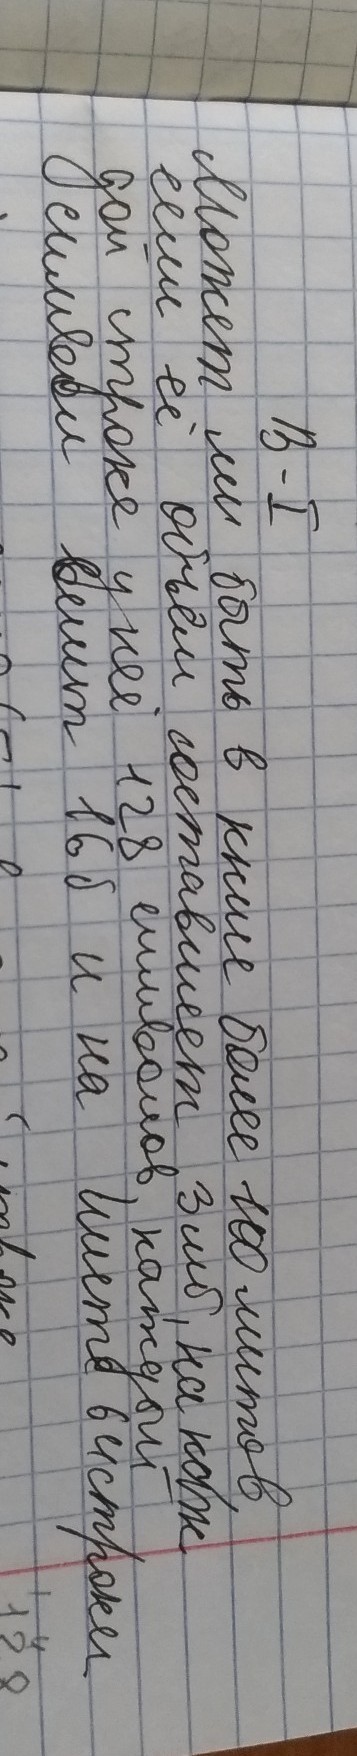 В-I
Может ли быть в книге более 100 листов,
если её объём составляет 3мб, на каж
дой строке у неё 128 символов, каждый
символ весит 16б и на листе 64 строки
128